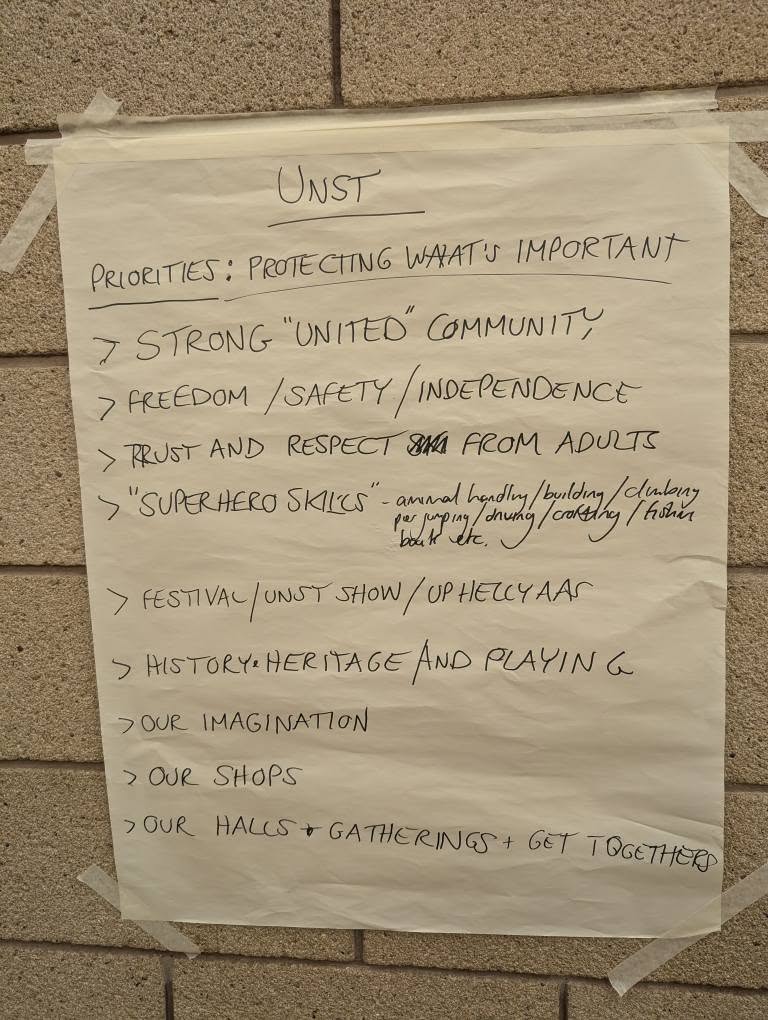 UNST
PRIORITIES: PROTECTING WHAT'S IMPORTANT
> STRONG "UNITED" COMMUNITY
> FREEDOM / SAFETY / INDEPENDENCE
> TRUST AND RESPECT FROM ADULTS
> "SUPERHERO SKILLS" - animal handling / building / climbing
pier jumping / driving / crofting / fishing
boats etc.
> FESTIVAL / UNST SHOW / UP HELLY AAS
> HISTORY + HERITAGE / AND PLAYING
> OUR IMAGINATION
> OUR SHOPS
> OUR HALLS + GATHERINGS + GET TOGETHERS